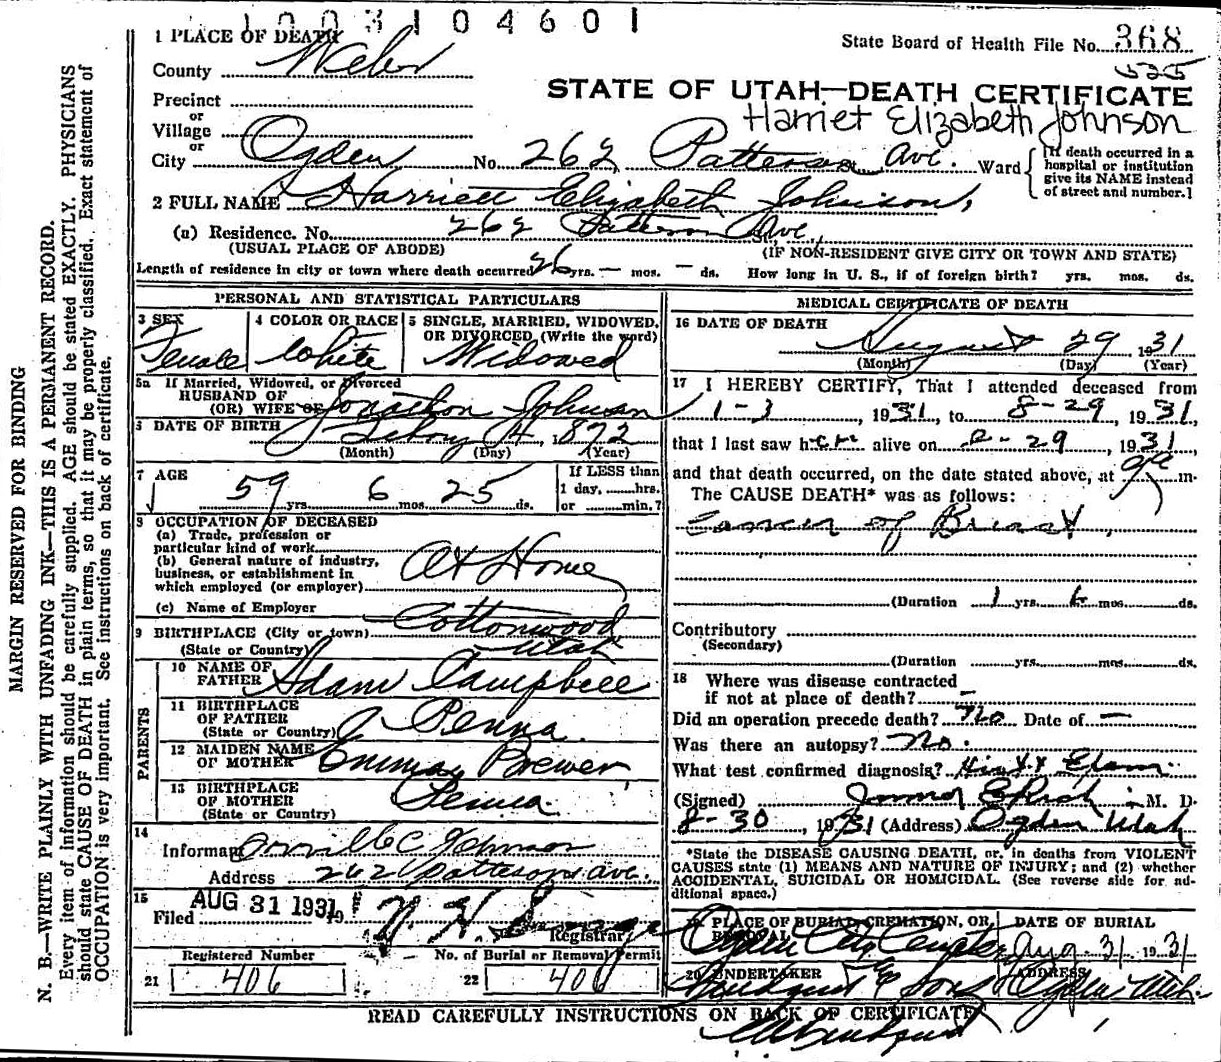 1003104601
1 PLACE OF DEATH
State Board of Health File No. 368
525
County Weber
STATE OF UTAH—DEATH CERTIFICATE
Precinct
or
Harriet Elizabeth Johnson
Village
or
City Ogden No. 262 Patterson St. Ave. Ward
[If death occurred in a hospital or institution give its NAME instead of street and number.]
2 FULL NAME Harriett Elizabeth Johnson,
(a) Residence. No. 262 Patterson Ave.,
(USUAL PLACE OF ABODE) (IF NON-RESIDENT GIVE CITY OR TOWN AND STATE)
Length of residence in city or town where death occurred 26 yrs. — mos. — ds. How long in U. S., if of foreign birth? yrs. mos. ds.
PERSONAL AND STATISTICAL PARTICULARS
3 SEX Female
4 COLOR OR RACE White
5 SINGLE, MARRIED, WIDOWED, OR DIVORCED (Write the word) Widowed
5a If Married, Widowed, or Divorced
HUSBAND OF
(OR) WIFE OF Jonathon Johnson
6 DATE OF BIRTH Febry 4, 1872
(Month) (Day) (Year)
7 AGE 59 yrs. 6 mos. 25 ds.
If LESS than
1 day, hrs.
or min.?
8 OCCUPATION OF DECEASED
(a) Trade, profession or
particular kind of work
(b) General nature of industry,
business, or establishment in
which employed (or employer) At Home
(c) Name of Employer
9 BIRTHPLACE (City or town) Cottonwood
(State or Country) Utah
PARENTS
10 NAME OF
FATHER Adam Campbell
11 BIRTHPLACE
OF FATHER
(State or Country) Penna.
12 MAIDEN NAME
OF MOTHER Emmay Brewer
13 BIRTHPLACE
OF MOTHER
(State or Country) Penna.
14
Informant Orville C Johnson
Address 262 Patterson ave.
15
Filed AUG 31 1931 19
Registrar
Registered Number
21 406
No. of Burial or Removal Permit
22 406
MEDICAL CERTIFICATE OF DEATH
16 DATE OF DEATH
August 29 1931
(Month) (Day) (Year)
17 I HEREBY CERTIFY, That I attended deceased from
1-3 1931, to 8-29 1931,
that I last saw her alive on 8-29 1931
and that death occurred, on the date stated above, at 9a m.
The CAUSE DEATH* was as follows:
Cancer of Breast,
(Duration 1 yrs. 6 mos. ds.
Contributory
(Secondary)
(Duration yrs. mos. ds.
18 Where was disease contracted
if not at place of death? —
Did an operation precede death? No Date of —
Was there an autopsy? No.
What test confirmed diagnosis? Exam
(Signed) M. D.
8-30, 1931 (Address) Ogden Utah
*State the DISEASE CAUSING DEATH, or, in deaths from VIOLENT
CAUSES state (1) MEANS AND NATURE OF INJURY; and (2) whether
ACCIDENTAL, SUICIDAL OR HOMICIDAL. (See reverse side for ad-
ditional space.)
19 PLACE OF BURIAL, CREMATION, OR REMOVAL
Ogden City Cemetery
DATE OF BURIAL
Aug. 31 1931
20 UNDERTAKER
Lindquist & Sons
ADDRESS
Ogden, Utah.
READ CAREFULLY INSTRUCTIONS ON BACK OF CERTIFICATE
MARGIN RESERVED FOR BINDING
N. B.—WRITE PLAINLY WITH UNFADING INK—THIS IS A PERMANENT RECORD.
Every item of Information should be carefully supplied. AGE should be stated EXACTLY. PHYSICIANS
should state CAUSE OF DEATH in plain terms, so that it may be properly classified. Exact statement of
OCCUPATION is very important. See instructions on back of certificate.